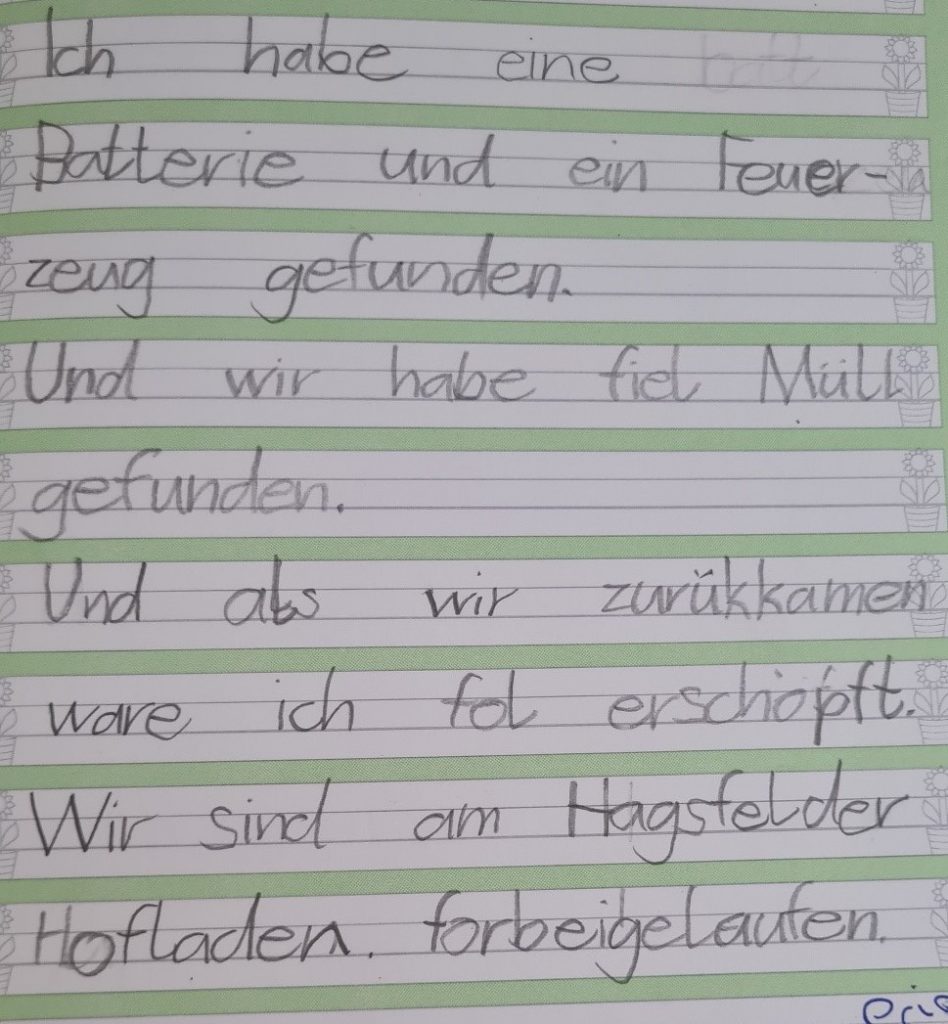 Ich habe eine
Batterie und ein Feuer-
zeug gefunden.
Und wir habe fiel Müll
gefunden.
Und als wir zurükkamen
ware ich fol erschöpft.
Wir sind am Hagsfelder
Hofladen. forbeigelaufen.